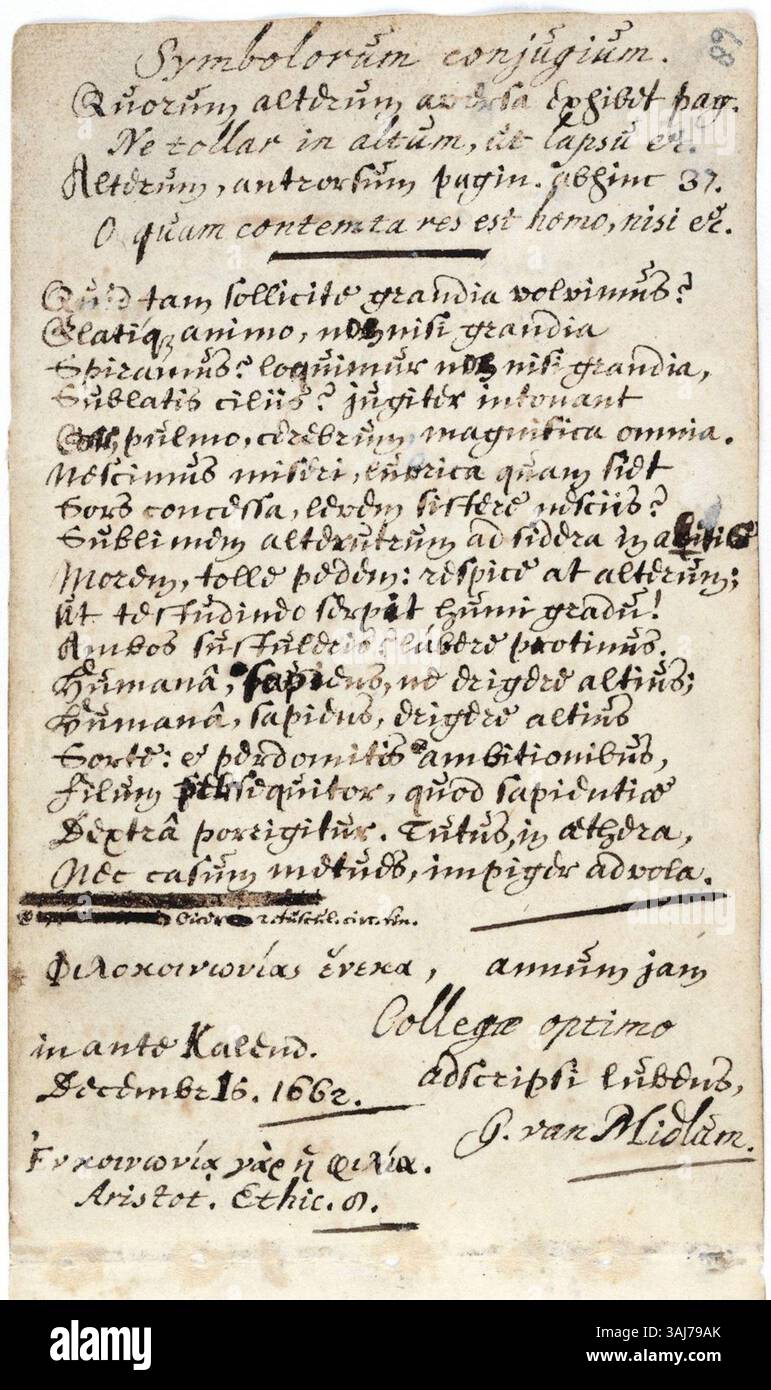 89
Symbolorum conjugium.
Quorum alterum aversa exhibet pag.
Ne tollar in altum, ut lapsu &c.
Alterum, antrorsum pagin. abhinc 37.
O quam contemta res est homo, nisi &c.
Quid tam sollicite grandia volvimus?
Elatiq; animo, non nisi grandia
Spiramus? loquimur non nisi grandia,
Sublatis ciliis? jugiter intonant
pulmo, cerebrum, magnifica omnia.
Nescimus miseri, lubrica quam siet
Sors concessa, levem sistere nesciis?
Sublimem alterutrum ad sidera in
Morem, tolle pedem: respice at alterum;
Ut testudineo serpit humi gradu!
Ambos sustuleris? labere protinus.
Humanâ, sapiens, ne erigere altius;
Humanâ, sapiens, erigere altius
Sorte: e perdomitis ambitionibus,
Filum persequitor, quod sapientiæ
Dextrâ porrigitur. Tutus, in æthera,
Nec casum metues, impiger advola.
Φιλοκοινωνίας ἕνεκα, annum jam
Collegæ optimo
in ante Kalend.
adscripsi lubens,
Decembr1s. 1662.
G. van Midlum.
Ἐν κοινωνίᾳ γὰρ ἡ φιλία.
Aristot. Ethic. 8.
alamy
Image ID: 3AJ79AK
www.alamy.com